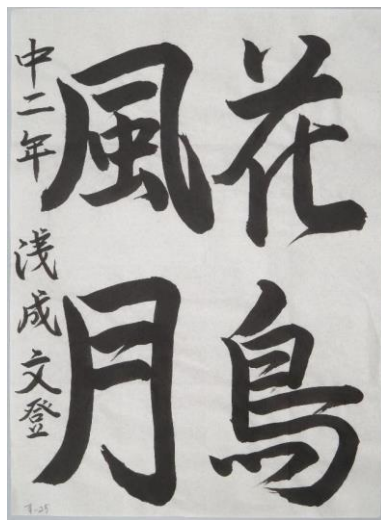 花鳥
風月
中二年 浅成文登